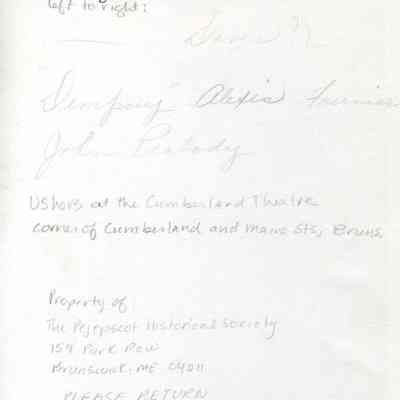 left to right:
"Dempsey" Alexis Fournier
John Peabody
Ushers at the Cumberland Theatre
corner of Cumberland and Maine Sts, Bruns.
Property of:
The Pejepscot Historical Society
159 Park Row
Brunswick, ME 04011
PLEASE RETURN